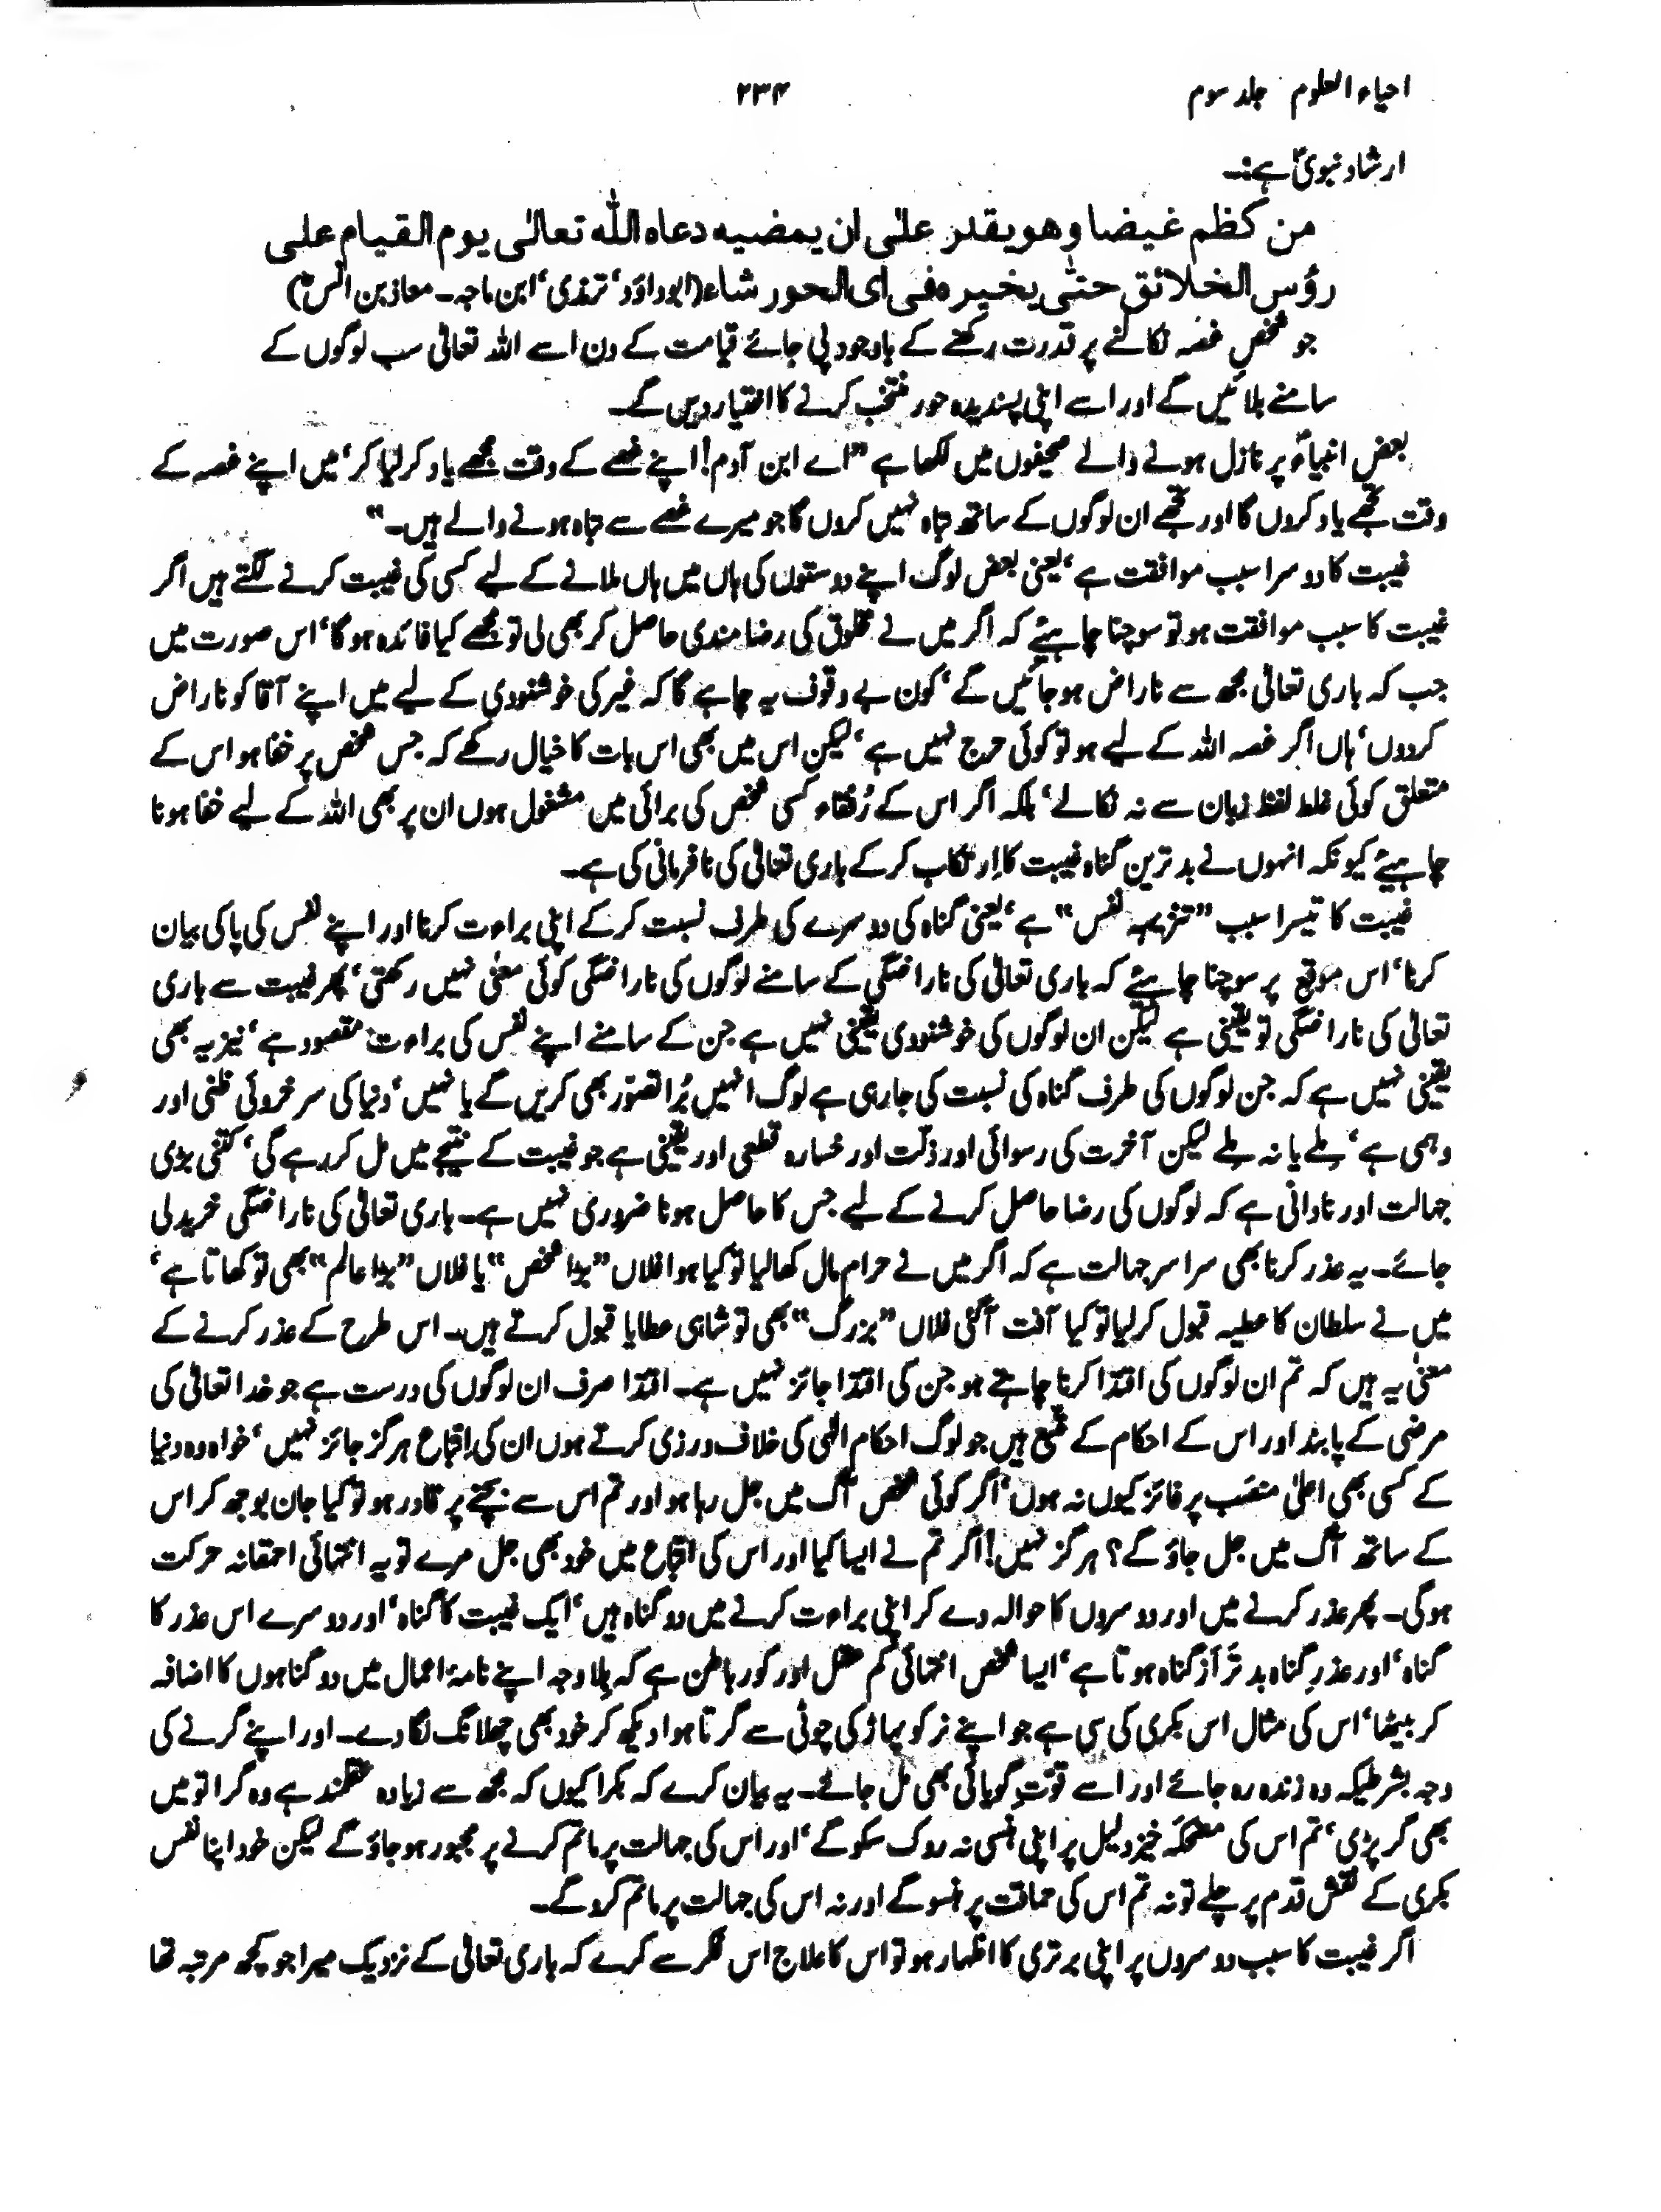 احیاء العلوم جلد سوم
۲۳۴
ارشاد نبویؐ ہے:۔
من کظم غیضا وھو یقدر علیٰ ان یمضیہ دعاہ اللہ تعالیٰ یوم القیام علی
رؤس الخلائق حتیٰ یخیرہ فی ای الحور شاء (ابوداؤد، ترمذی، ابن ماجہ۔ معاذ بن انسؓ)
جو شخص غصہ نکالنے پر قدرت رکھنے کے باوجود پی جائے قیامت کے دن اسے اللہ تعالیٰ سب لوگوں کے
سامنے بلائیں گے اور اسے اپنی پسندیدہ حور منتخب کرنے کا اختیار دیں گے۔
بعض انبیاءؑ پر نازل ہونے والے صحیفوں میں لکھا ہے "اے ابن آدم! اپنے غصے کے وقت مجھے یاد کرلیا کر، میں اپنے غصہ کے
وقت تجھے یاد کروں گا اور تجھے ان لوگوں کے ساتھ تباہ نہیں کروں گا جو میرے غصے سے تباہ ہونے والے ہیں۔"
غیبت کا دوسرا سبب موافقت ہے، یعنی بعض لوگ اپنے دوستوں کی ہاں میں ہاں ملانے کے لیے کسی کی غیبت کرنے لگتے ہیں اگر
غیبت کا سبب موافقت ہو تو سوچنا چاہیئے کہ اگر میں نے مخلوق کی رضامندی حاصل کر بھی لی تو مجھے کیا فائدہ ہوگا، اس صورت میں
جب کہ باری تعالیٰ مجھ سے ناراض ہوجائیں گے، کون بے وقوف یہ چاہے گا کہ غیر کی خوشنودی کے لیے میں اپنے آقا کو ناراض
کردوں، ہاں اگر غصہ اللہ کے لیے ہو تو کوئی حرج نہیں ہے، لیکن اس میں بھی اس بات کا خیال رکھے کہ جس شخص پر خفا ہو اس کے
متعلق کوئی غلط لفظ زبان سے نہ نکالے، بلکہ اگر اس کے رُفقاء کسی شخص کی برائی میں مشغول ہوں ان پر بھی اللہ کے لیے خفا ہونا
چاہیئے کیونکہ انہوں نے بدترین گناہ غیبت کا اِرتکاب کرکے باری تعالیٰ کی نافرمانی کی ہے۔
غیبت کا تیسرا سبب "تنزیہہ نفس" ہے، یعنی گناہ کی دوسرے کی طرف نسبت کرکے اپنی براءت کرنا اور اپنے نفس کی پاکی بیان
کرنا، اس موقع پر سوچنا چاہئے کہ باری تعالیٰ کی ناراضگی کے سامنے لوگوں کی ناراضگی کوئی معنیٰ نہیں رکھتی، پھر غیبت سے باری
تعالیٰ کی ناراضگی تو یقینی ہے لیکن ان لوگوں کی خوشنودی یقینی نہیں ہے جن کے سامنے اپنے نفس کی براءت مقصود ہے، نیز یہ بھی
یقینی نہیں ہے کہ جن لوگوں کی طرف گناہ کی نسبت کی جارہی ہے لوگ انہیں بُرا تصوّر بھی کریں گے یا نہیں، دنیا کی سرخروئی ظنی اور
وہمی ہے، ملے یا نہ ملے لیکن آخرت کی رسوائی اور ذلّت اور خسارہ قطعی اور یقینی ہے جو غیبت کے نتیجے میں مل کر رہے گی، کتنی بڑی
جہالت اور نادانی ہے کہ لوگوں کی رضا حاصل کرنے کے لیے جس کا حاصل ہونا ضروری نہیں ہے۔ باری تعالیٰ کی ناراضگی خریدلی
جائے۔ یہ عذر کرنا بھی سراسر جہالت ہے کہ اگر میں نے حرام مال کھالیا تو کیا ہوا فلاں "بڑا شخص" یا فلاں "بڑا عالم" بھی تو کھاتا ہے،
میں نے سلطان کا عطیہ قبول کرلیا تو کیا آفت آگئی فلاں "بزرگ" بھی تو شاہی عطایا قبول کرتے ہیں۔ اس طرح کے عذر کرنے کے
معنیٰ یہ ہیں کہ تم ان لوگوں کی اقتدا کرنا چاہتے ہو جن کی اقتدا جائز نہیں ہے۔ اقتدا صرف ان لوگوں کی درست ہے جو خدا تعالیٰ کی
مرضی کے پابند اور اس کے احکام کے متّبع ہیں جو لوگ احکام الٰہی کی خلاف ورزی کرتے ہوں ان کی اِتباع ہرگز جائز نہیں، خواہ وہ دنیا
کے کسی بھی اعلیٰ منصَب پر فائز کیوں نہ ہوں، اگر کوئی شخص آگ میں جل رہا ہو اور تم اس سے بچنے پر قادر ہو تو کیا جان بوجھ کر اس
کے ساتھ آگ میں جل جاؤ گے؟ ہرگز نہیں! اگر تم نے ایسا کیا اور اس کی اتباع میں خود بھی جل مرے تو یہ انتہائی احمقانہ حرکت
ہوگی۔ پھر عذر کرنے میں اور دوسروں کا حوالہ دے کر اپنی براءت کرنے میں دو گناہ ہیں، ایک غیبت کا گناہ، اور دوسرے اس عذر کا
گناہ، اور عذرِ گناہ بدتَر اَز گناہ ہوتا ہے، ایسا شخص انتہائی کم عقل اور کور باطن ہے کہ بِلاوجہ اپنے نامۂ اعمال میں دو گناہوں کا اضافہ
کر بیٹھا، اس کی مثال اس بکری کی سی ہے جو اپنے نر کو پہاڑ کی چوٹی سے گرتا ہوا دیکھ کر خود بھی چھلانگ لگا دے۔ اور اپنے گرنے کی
وجہ بشرطیکہ وہ زندہ رہ جائے اور اسے قوّتِ گویائی بھی مل جائے۔ یہ بیان کرے کہ بکرا کیوں کہ مجھ سے زیادہ عقلمند ہے وہ گرا تو میں
بھی گر پڑی، تم اس کی مضحکہ خیز دلیل پر اپنی ہنسی نہ روک سکو گے، اور اس کی جہالت پر ماتم کرنے پر مجبور ہوجاؤ گے لیکن خود اپنا نفس
بکری کے نقش قدم پر چلے تو نہ تم اس کی حماقت پر ہنسو گے اور نہ اس کی جہالت پر ماتم کرو گے۔
اگر غیبت کا سبب دوسروں پر اپنی برتری کا اظہار ہو تو اس کا علاج اس فکر سے کرے کہ باری تعالیٰ کے نزدیک میرا جو کچھ مرتبہ تھا